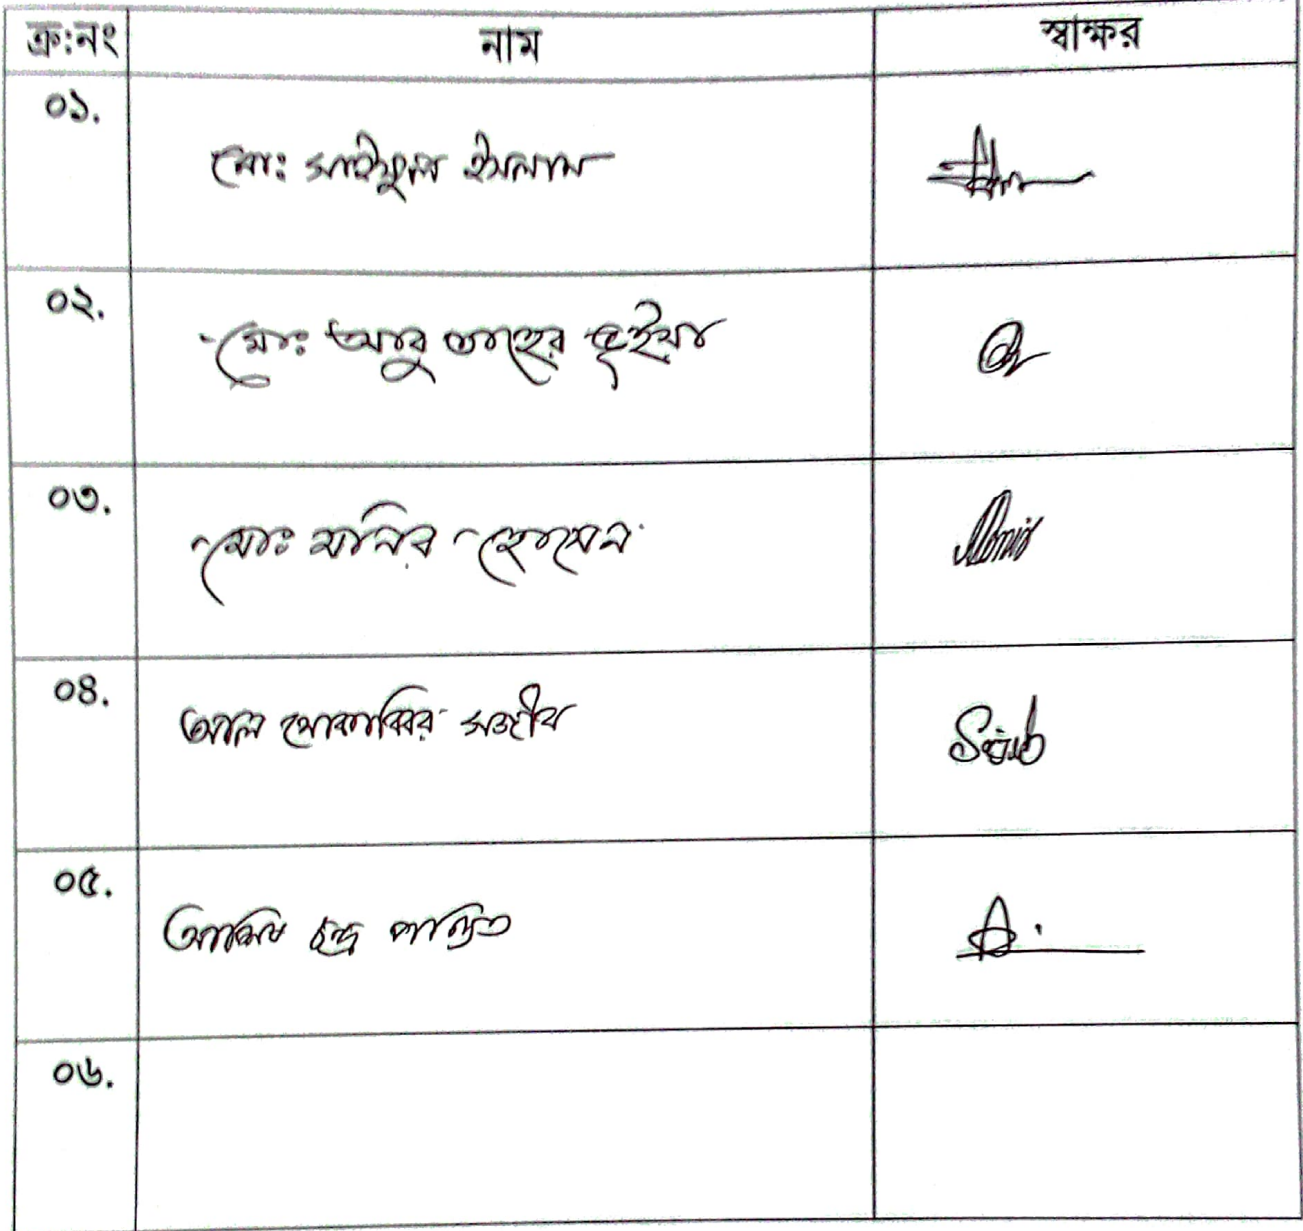 ক্র:নং নাম স্বাক্ষর
০১. মো: সাইফুল ইসলাম
০২. মোঃ আবু তাহের ভূইয়া
০৩. মোঃ মনির হোসেন Monir
০৪. আল মোকাব্বির সজীব Sajib
০৫. চন্দ্র পন্ডিত
০৬.